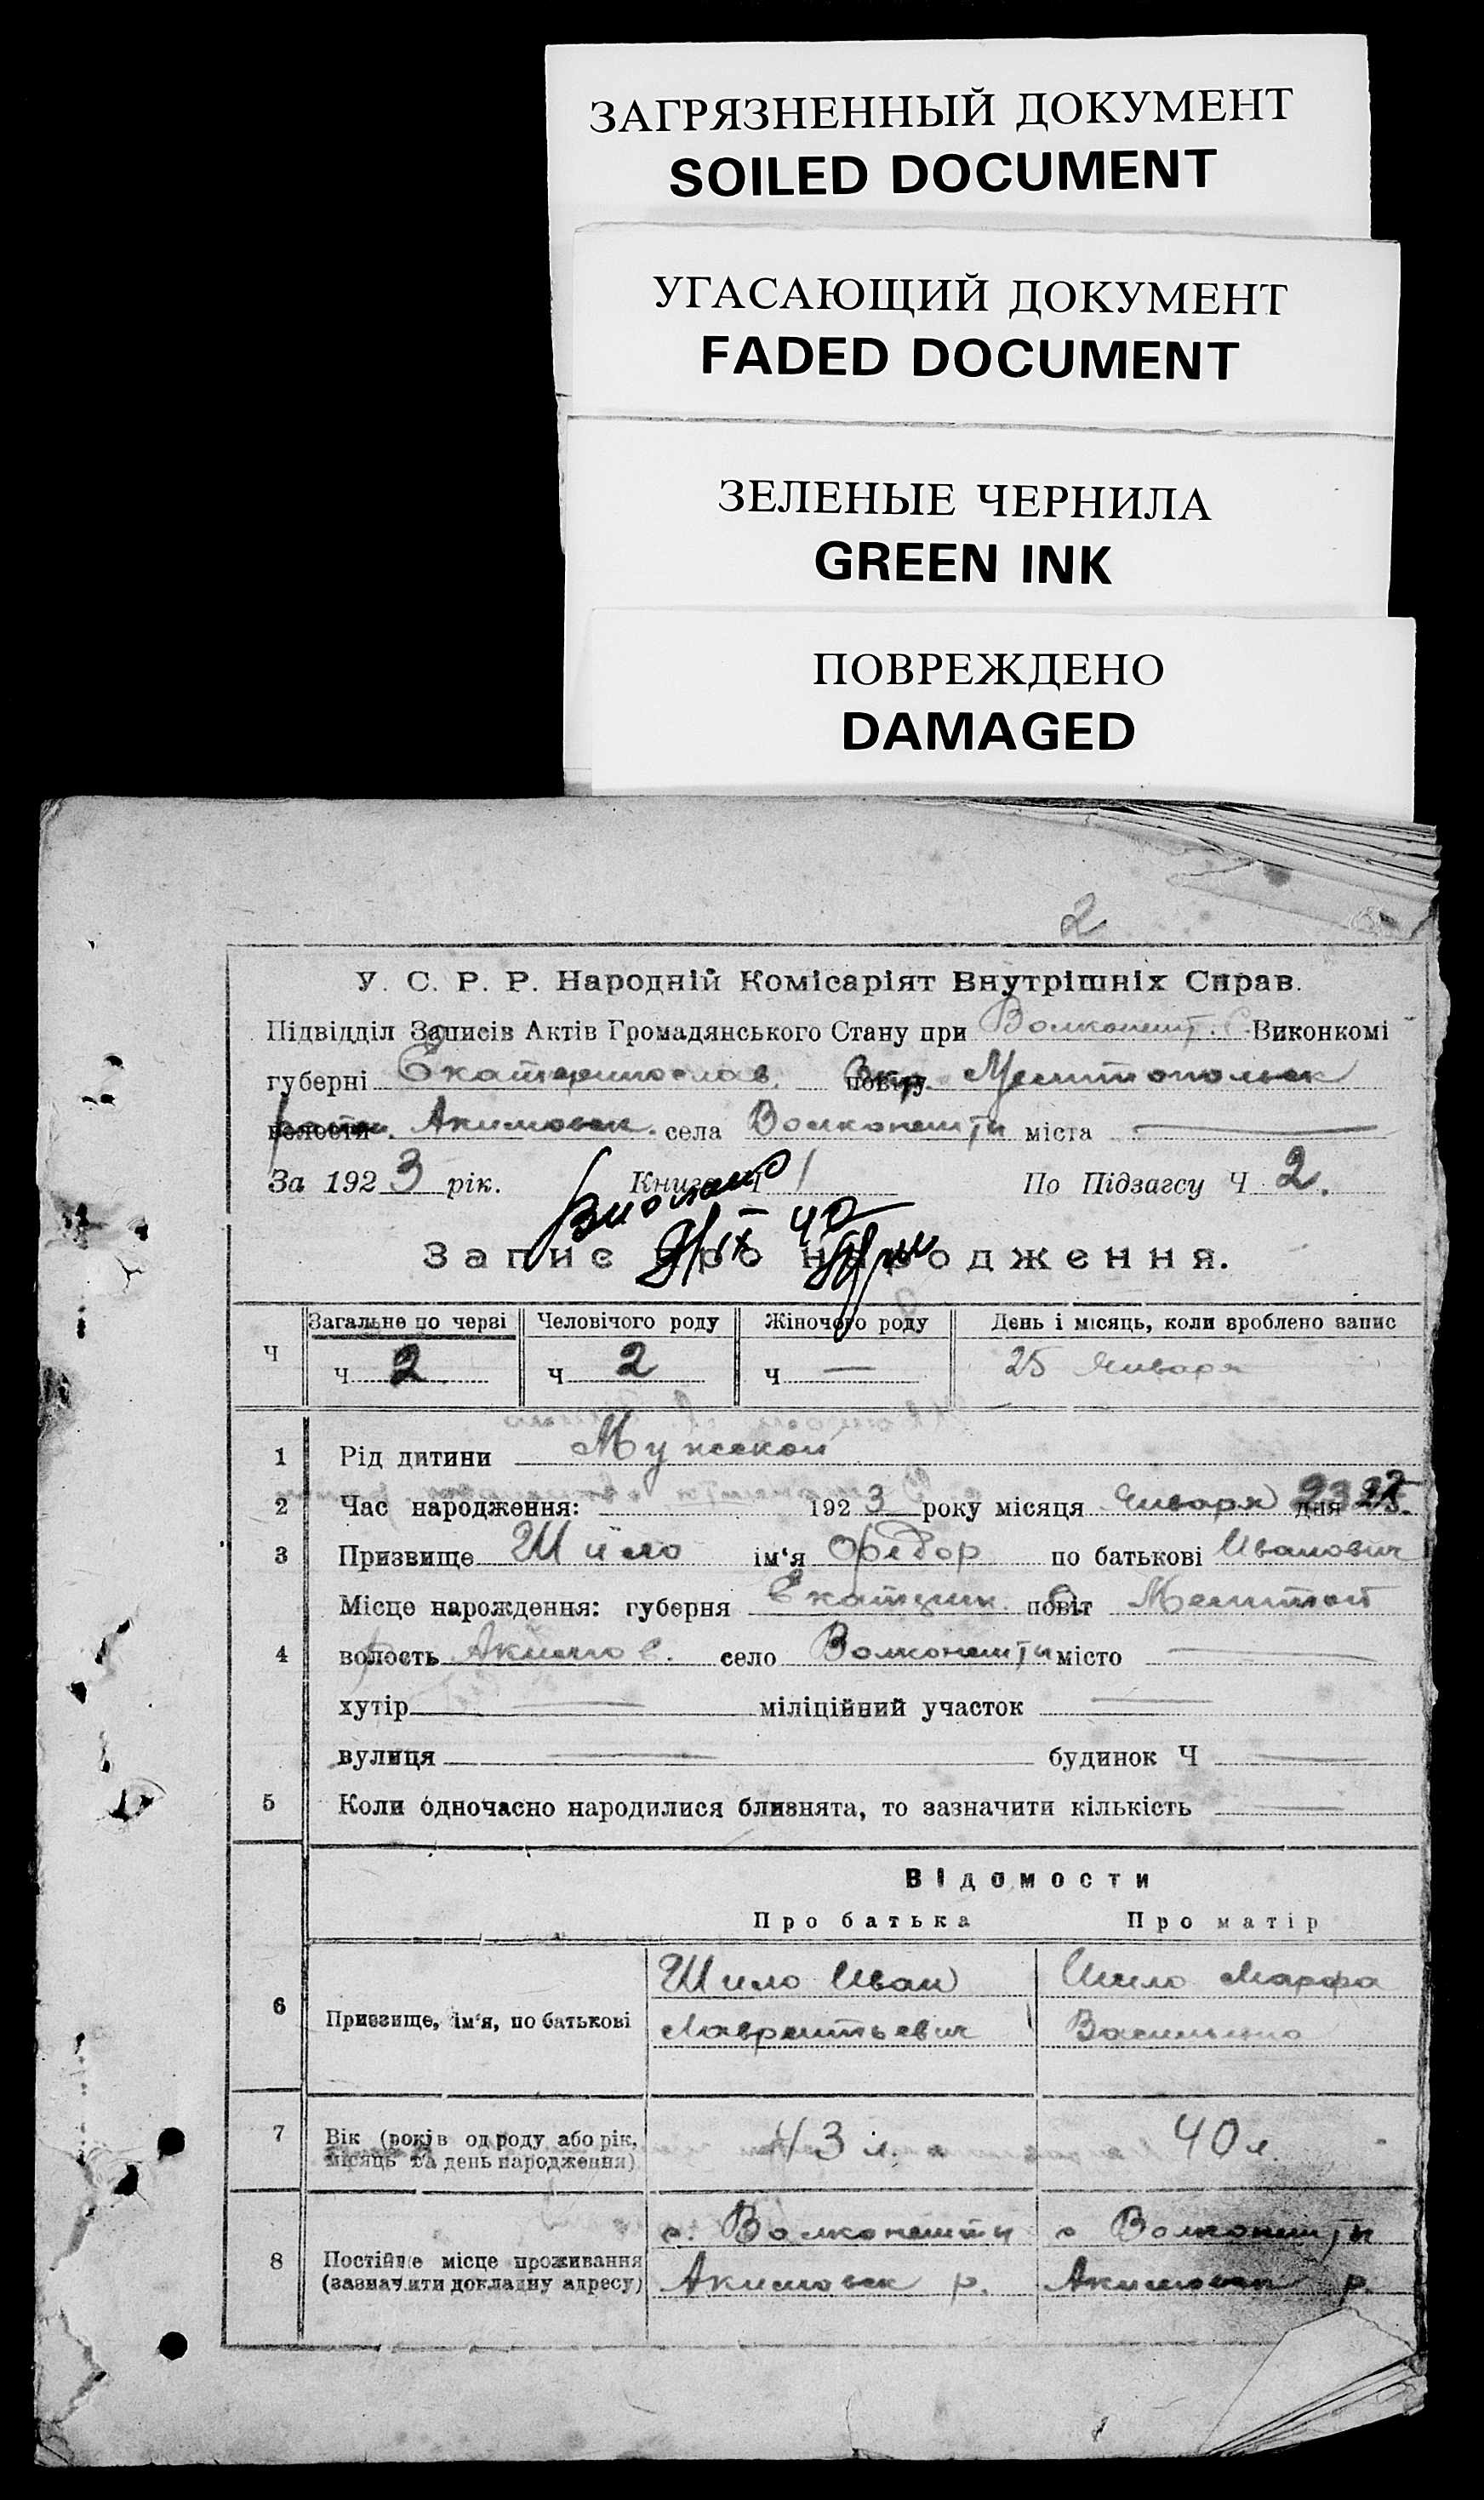 ЗАГРЯЗНЕННЫЙ ДОКУМЕНТ
SOILED DOCUMENT
УГАСАЮЩИЙ ДОКУМЕНТ
FADED DOCUMENT
ЗЕЛЕНЫЕ ЧЕРНИЛА
GREEN INK
ПОВРЕЖДЕНО
DAMAGED
2
У. С. Р. Р. Народній Комісаріят Внутрішніх Справ.
Підвідділ Записів Актів Громадянського Стану при Волконешт. С. Виконкомі
губерні Екатеринослав. повіту Окр. Мелитопольск
волости район. Акимовск. села Волконешты міста —
За 1923 рік. Книга Ч 1 По Підзагсу Ч 2.
9/IX – 40
Запис про народження.
Загальне по черзі Человічого роду Жіночого роду День і місяць, коли вроблено запис
Ч ч 2 ч 2 ч — 25 Января
1 Рід дитини Мужской
2 Час народження: 1923 року місяця Января дня
3 Призвище Шило ім'я Федор по батькові Иванович
Місце народження: губерня Екатерин. повіт Мелитоп
4 волость Акимов. село Волконешты місто —
хутір — міліційний участок —
вулиця — будинок Ч —
5 Коли одночасно народилися близнята, то зазначити кількість —
Відомости
Про батька Про матір
6 Призвище, ім'я, по батькові Шило Иван Шило Марфа
Лаврентьевич Васильевна
7 Вік (років од роду або рік, місяць та день народження) 43 л. 40 л.
8 Постійне місце проживання (зазначити докладну адресу) с. Волконешты с Волконешты
Акимовск р. Акимовск р.